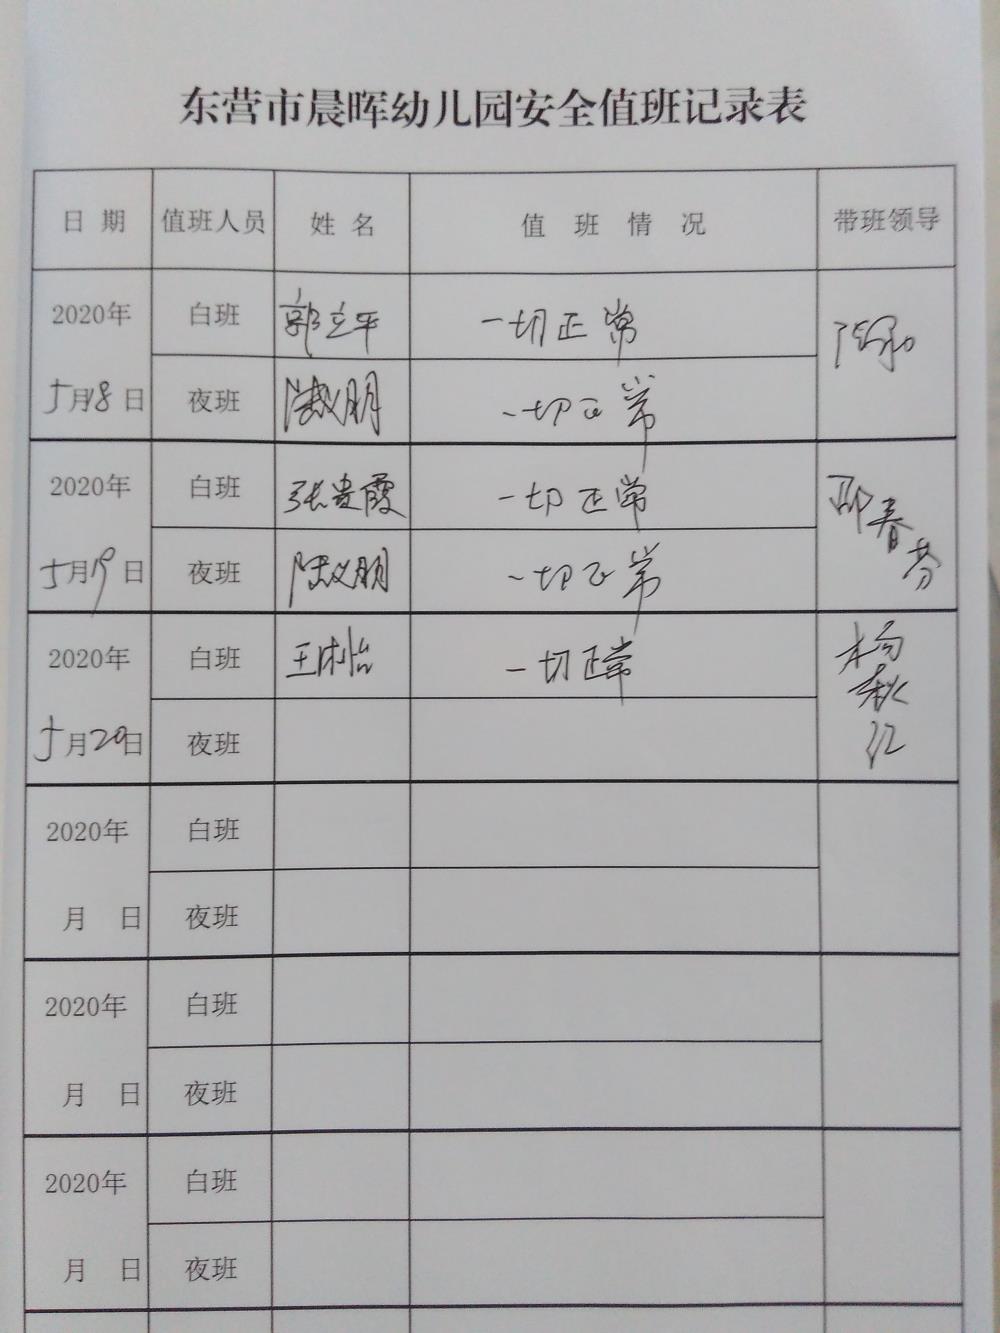 东营市晨晖幼儿园安全值班记录表
日 期 值班人员 姓 名 值 班 情 况 带班领导
2020年 白班 郭立平 一切正常
5月18日 夜班 陆义朋 一切正常
2020年 白班 张贵霞 一切正常 邵春芬
5月19日 夜班 陆义朋 一切正常
2020年 白班 王沐怡 一切正常 杨秋红
5月20日 夜班
2020年 白班
月 日 夜班
2020年 白班
月 日 夜班
2020年 白班
月 日 夜班